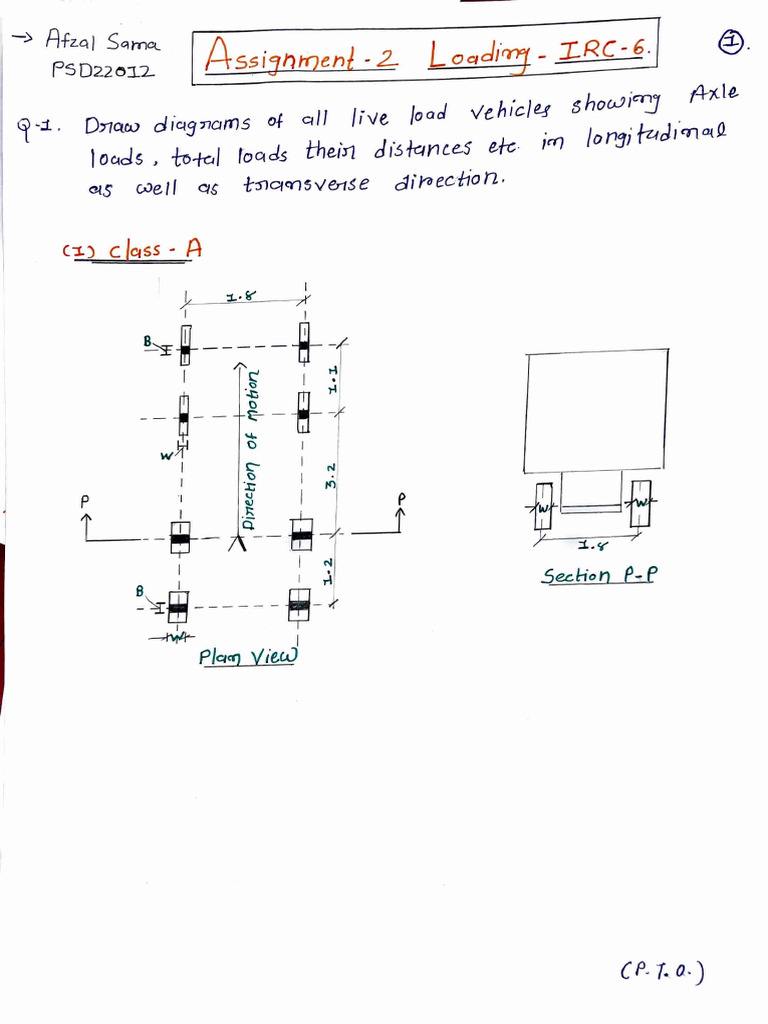 → Afzal Sama
PSD22012
Assignment-2 Loading-IRC-6.
1.
Q-1. Draw diagrams of all live load vehicles showing Axle
loads, total loads their distances etc in longitudinal
as well as transverse direction.
(I) Class-A
1.8
B
1.1
Direction of Motion
W
3.2
P
P
1.2
B
W
Plan View
W
W
1.8
Section P-P
(P.T.O.)